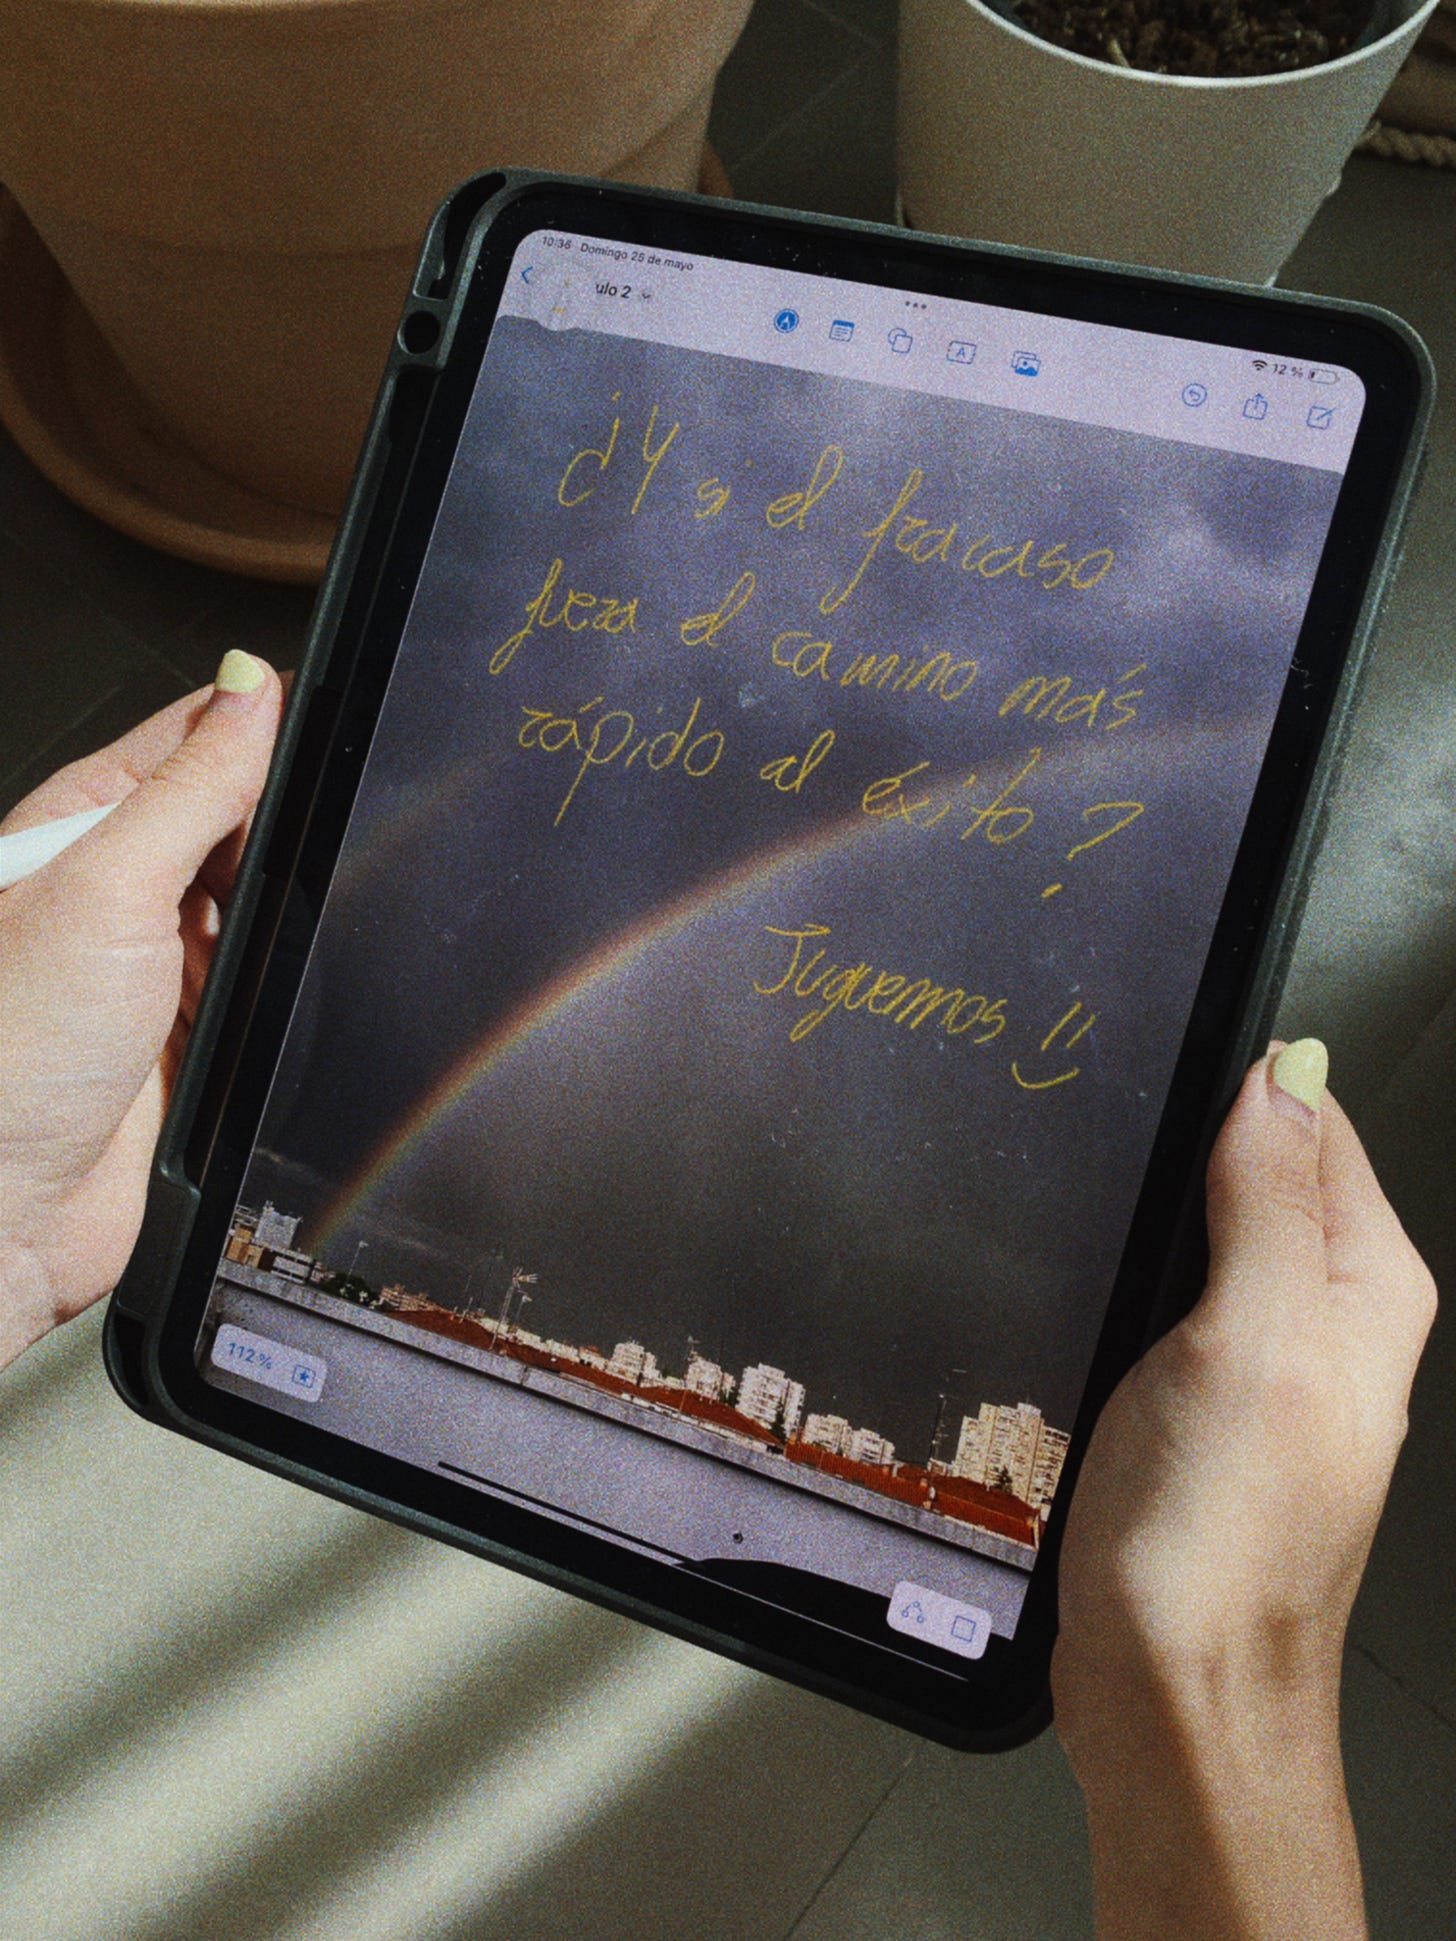 10:36 Domingo 25 de mayo
ulo 2
12 %
¿Y si el fracaso
fuera el camino más
rápido al éxito?
Juguemos
112 %